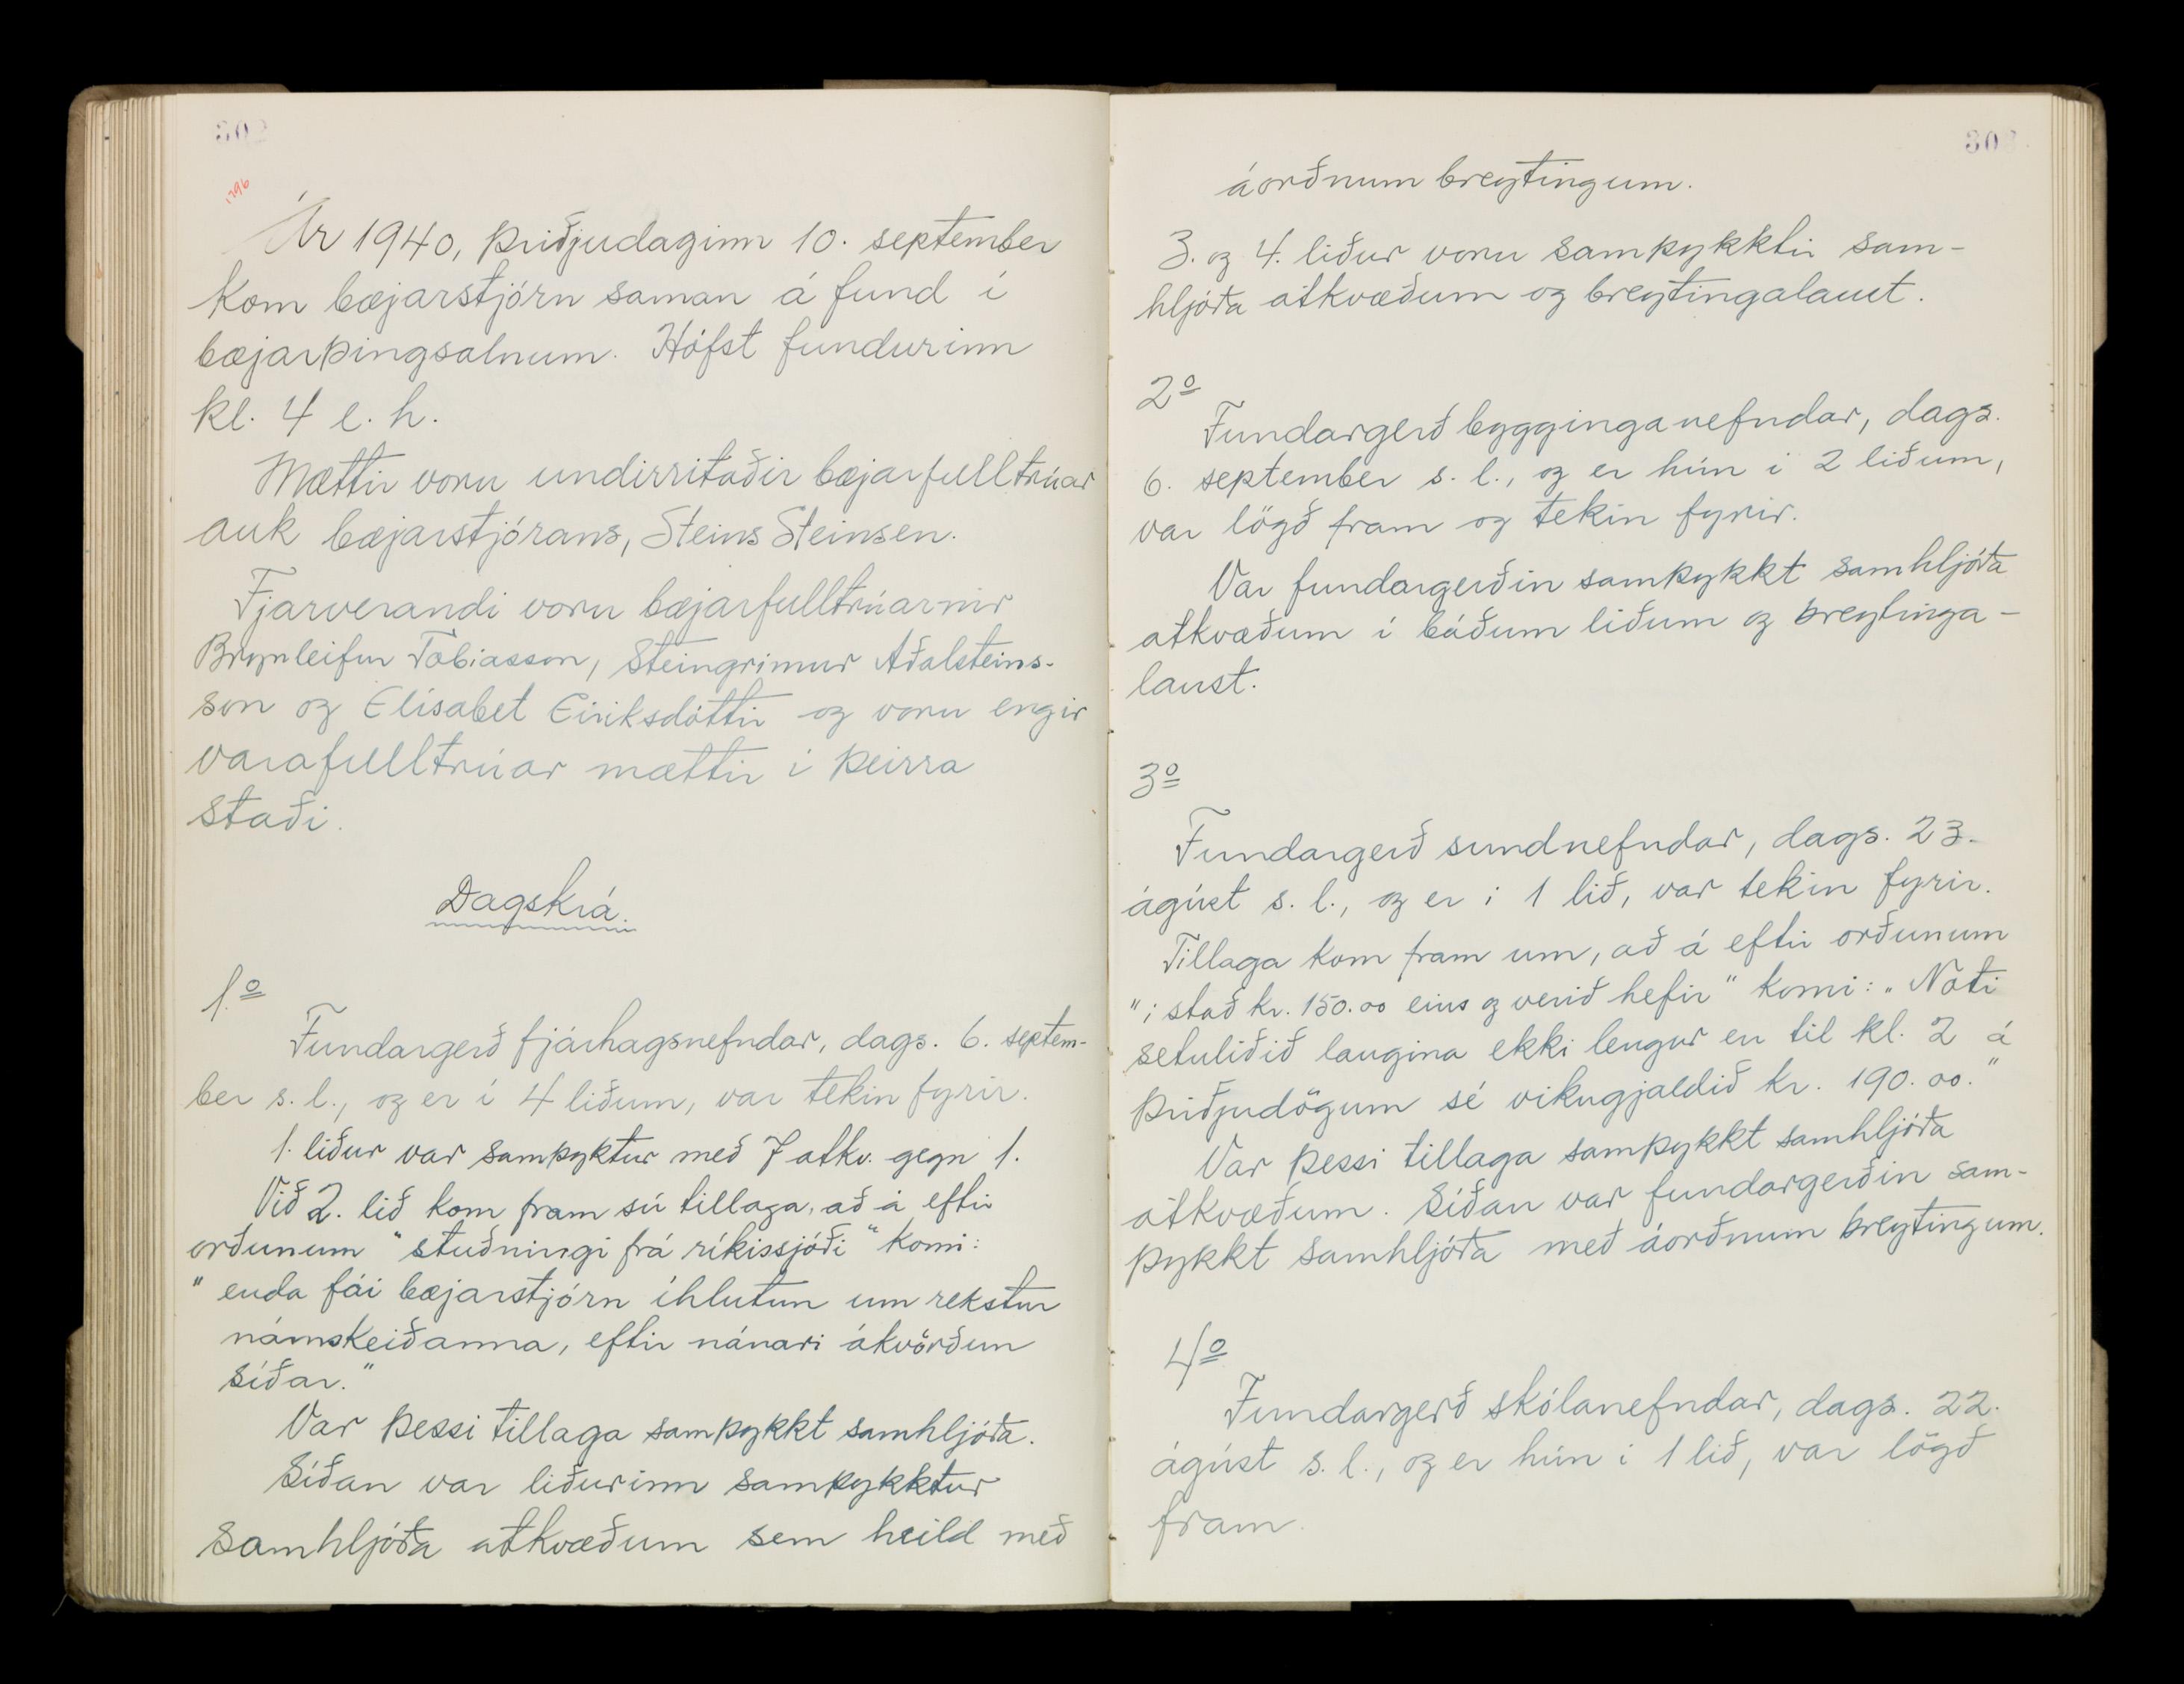 1796
Ár 1940, þriðjudaginn 10. september
kom bæjarstjórn saman á fund í
bæjarþingsalnum. Hófst fundurinn
kl. 4 e. h.
Mættir voru undirritaðir bæjarfulltrúar
auk bæjarstjórans, Steins Steinsen.
Fjarverandi voru bæjarfulltrúarnir
Brynleifur Tobiasson, Steingrimur Aðalsteins-
son og Elísabet Eiríksdóttir og voru engir
varafulltrúar mættir í þeirra
staði.
Dagskrá.
1.º
Fundargerð fjárhagsnefndar, dags. 6. septem-
ber s. l., og er í 4 liðum, var tekin fyrir.
1. liður var samþyktur með 7 atkv. gegn 1.
Við 2. lið kom fram sú tillaga, að á eftir
orðunum "stuðningi frá ríkissjóði" komi:
"enda fái bæjarstjórn íhlutun um rekstur
námskeiðanna, eftir nánari ákvörðun
síðar."
Var þessi tillaga samþykkt samhljóða.
Síðan var liðurinn samþykktur
samhljóða atkvæðum sem heild með
30
áorðnum breytingum.
3. og 4. liður voru samþykktir sam-
hljóða atkvæðum og breytingalaust.
2º
Fundargerð bygginganefndar, dags.
6. september s. l., og er hún í 2 liðum,
var lögð fram og tekin fyrir.
Var fundargerðin samþykkt samhljóða
atkvæðum í báðum liðum og breytinga-
laust.
3º
Fundargerð sundnefndar, dags. 23.
ágúst s. l., og er í 1 lið, var tekin fyrir.
Tillaga kom fram um, að á eftir orðunum
"í stað kr. 150.00 eins og verið hefir" komi: „Noti
setuliðið laugina ekki lengur en til kl. 2 á
þriðjudögum sé vikugjaldið kr. 190.00."
Var þessi tillaga samþykkt samhljóða
atkvæðum. Síðan var fundargerðin sam-
þykkt samhljóða með áorðnum breytingum.
4º
Fundargerð skólanefndar, dags. 22.
ágúst s. l., og er hún í 1 lið, var lögð
fram.